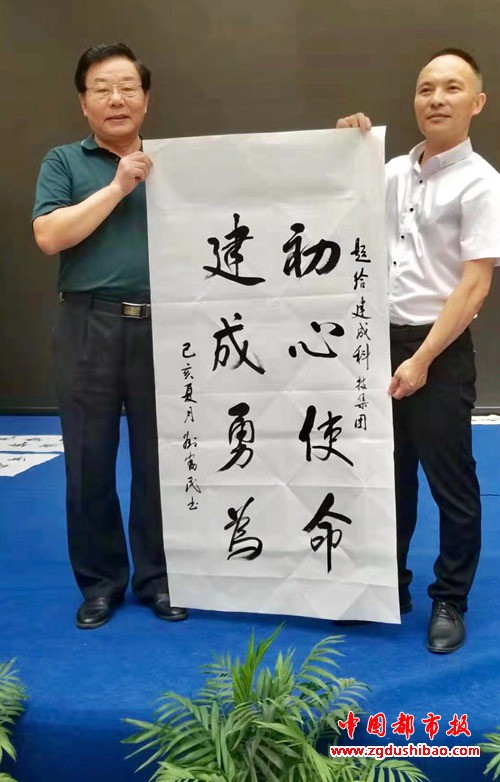 题给建成科技集团
初心使命
建成勇为
己亥夏月 民书
中国都市报
www.zgdushibao.com